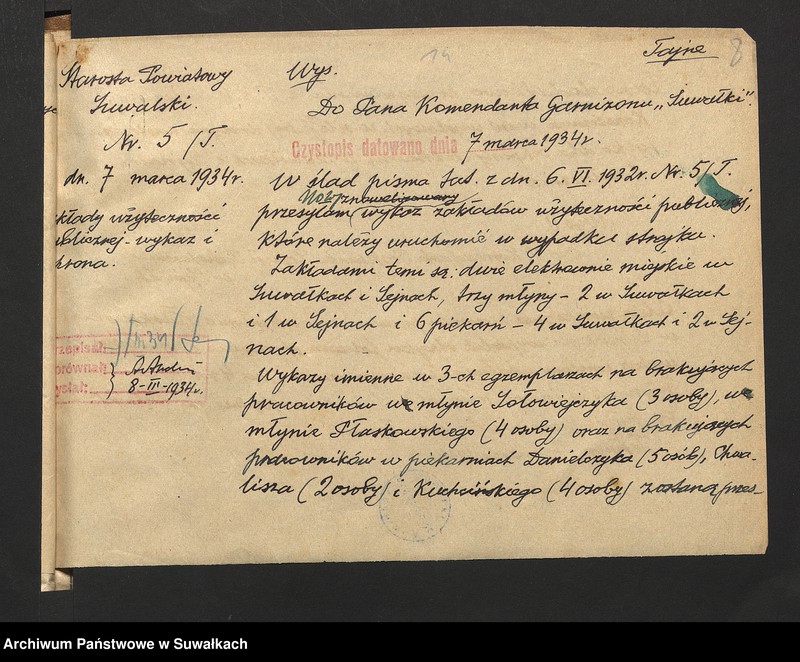 14
Tajne
8
Starosta Powiatowy
Suwalski.
Nr. 5/T.
dn. 7 marca 1934r.
kłady użyteczności
ublicznej - wykaz i
hrona.
Wys.
Do Pana Komendanta Garnizonu „Suwałki".
Czystopis datowano dnia 7 marca 1934r.
W ślad pisma tut. z dn. 6. VI. 1932r. Nr. 5/T.
przesyłam wykaz zakładów użyteczności publicznej,
które należy uruchomić w wypadku strajku.
Zakładami temi są: dwie elektrownie miejskie w
Suwałkach i Sejnach, trzy młyny - 2 w Suwałkach
i 1 w Sejnach i 6 piekarń - 4 w Suwałkach i 2 w Sej-
nach.
Wykazy imienne w 3-ch egzemplarzach na brakujących
pracowników we młynie Sołowiejczyka (3 osoby), we
młynie Płaskowskiego (4 osoby) oraz na brakujących
pracowników w piekarniach Danielczyka (5 osób), Chwa-
lisza (2 osoby) i Kuchcińskiego (4 osoby) zostaną przes-
rzepisał:
orównał:
ysłał:
8-III-1934r.
Archiwum Państwowe w Suwałkach